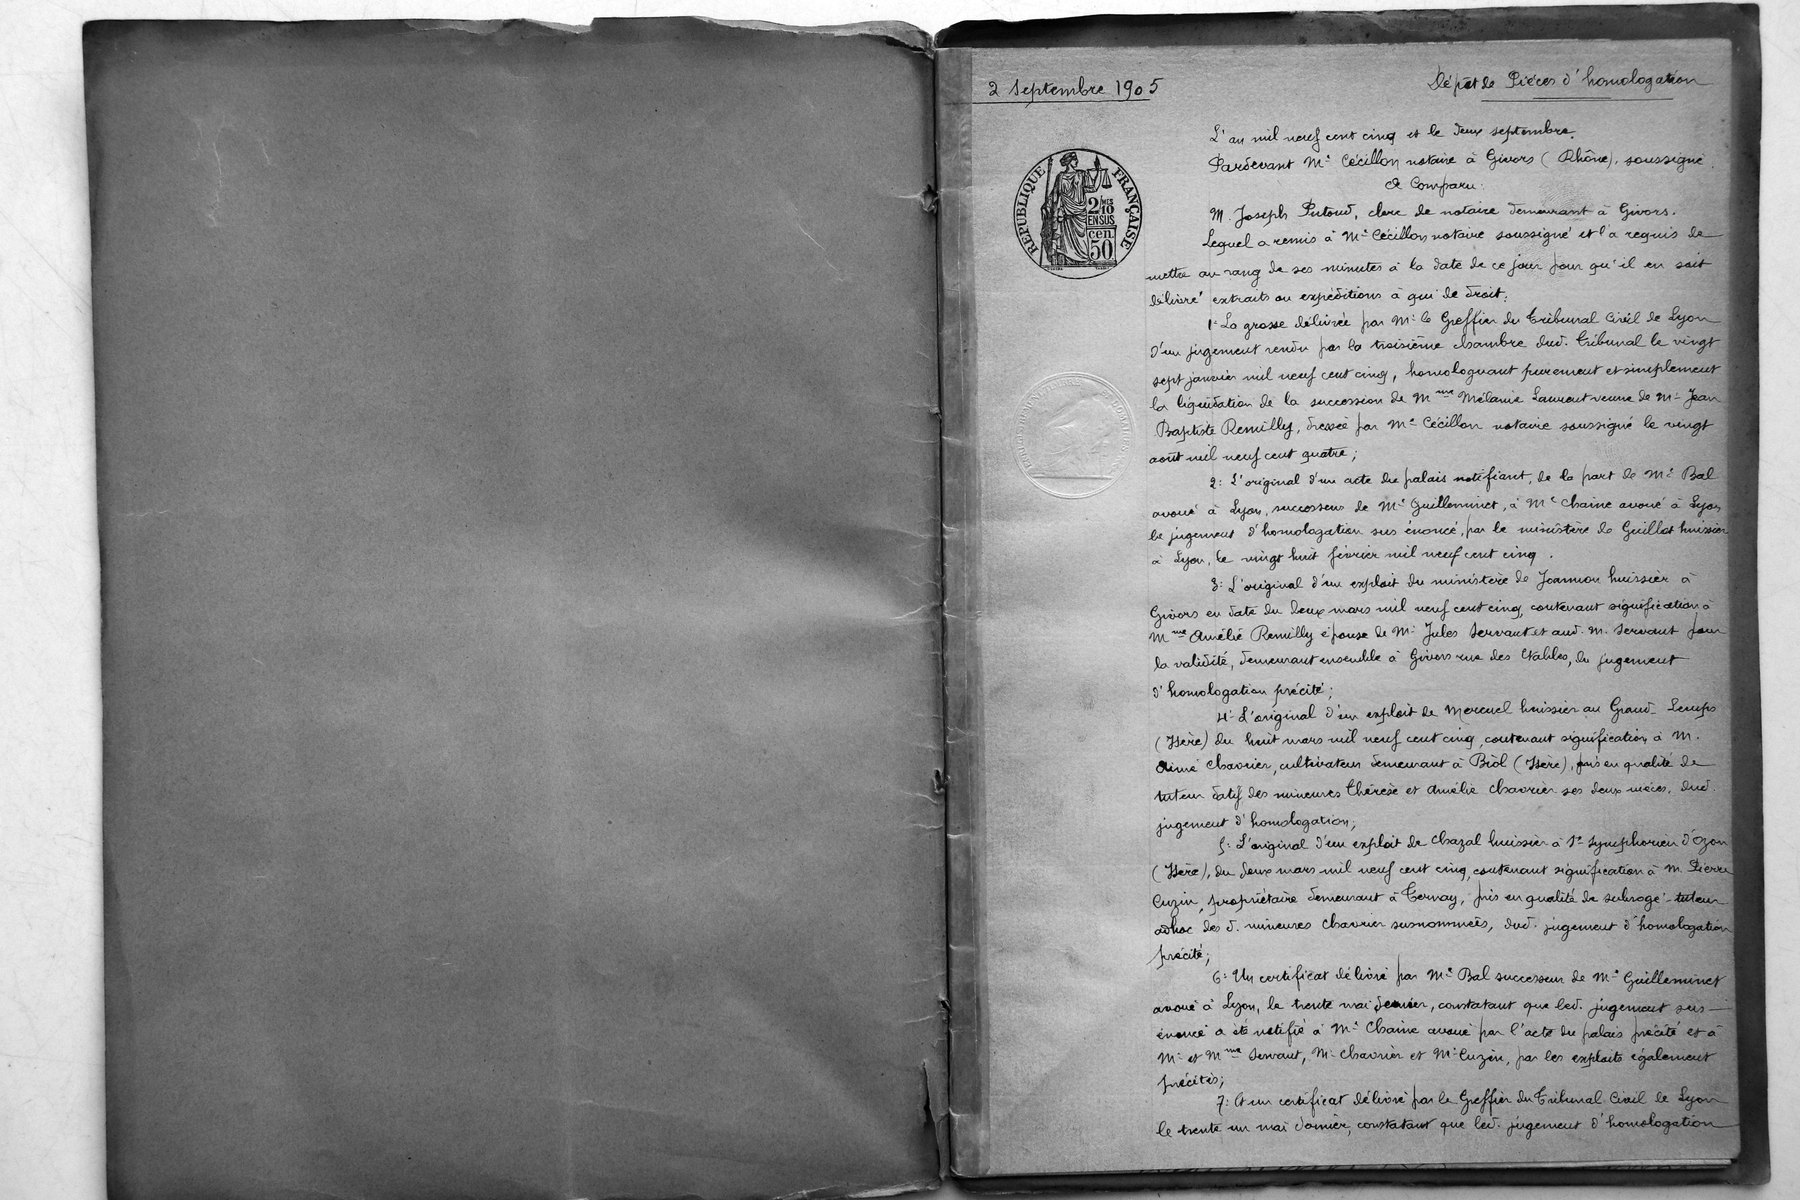 2 Septembre 1905
Dépôt de Pièces d'homologation
L'an mil neuf cent cinq et le deux septembre.
Pardevant Me Cécillon notaire à Givors (Rhône), soussigné.
A Comparu:
M. Joseph Putoud, clerc de notaire demeurant à Givors.
Lequel a remis à Me Cécillon notaire soussigné et l'a requis de
mettre au rang de ses minutes à la date de ce jour pour qu'il en soit
délivré extraits ou expéditions à qui de droit:
1º La grosse délivrée par Mr le Greffier du Tribunal Civil de Lyon
d'un jugement rendu par la troisième chambre dud. Tribunal le vingt
sept janvier mil neuf cent cinq, homologuant purement et simplement
la liquidation de la succession de Mme Mélanie Laurent veuve de Mr Jean
Baptiste Remilly, dressée par Me Cécillon notaire soussigné le vingt
août mil neuf cent quatre;
2º L'original d'un acte du palais notifiant, de la part de Me Bal
avoué à Lyon, successeur de Me Guilleminet, à Me Chaine avoué à Lyon
le jugement d'homologation sus énoncé, par le ministère de Guillot huissier
à Lyon, le vingt huit février mil neuf cent cinq.
3º L'original d'un exploit du ministère de Joannon huissier à
Givors en date du deux mars mil neuf cent cinq, contenant signification à
Mme Amélie Remilly épouse de Mr Jules Servant et aud. M. Servant pour
la validité, demeurant ensemble à Givors rue des Nables, du jugement
d'homologation précité;
4º L'original d'un exploit de Mercuel huissier au Grand-Lemps
(Isère) du huit mars mil neuf cent cinq, contenant signification à M.
Aimé Chavrier, cultivateur demeurant à Biol (Isère), pris en qualité de
tuteur datif des mineures Thérèse et Amélie Chavrier ses deux nièces, dud.
jugement d'homologation;
5º L'original d'un exploit de Chazal huissier à St Symphorien d'Ozon
(Isère), du deux mars mil neuf cent cinq, contenant signification à M. Pierre
Cuzin, propriétaire demeurant à Ternay, pris en qualité de subrogé-tuteur
adhoc des d. mineures Chavrier susnommées, dud. jugement d'homologation
précité;
6º Un certificat délivré par Me Bal successeur de Me Guilleminet
avoué à Lyon, le trente mai dernier, constatant que led. jugement sus-
énoncé a été notifié à Me Chaine avoué par l'acte du palais précité et à
Mr et Mme Servant, Mr Chavrier et Mr Cuzin, par les exploits également
précités;
7º Et un certificat délivré par le Greffier du Tribunal Civil de Lyon
le trente un mai dernier, constatant que led. jugement d'homologation
RÉPUBLIQUE FRANÇAISE
2/10 MES
EN SUS
50 cen.